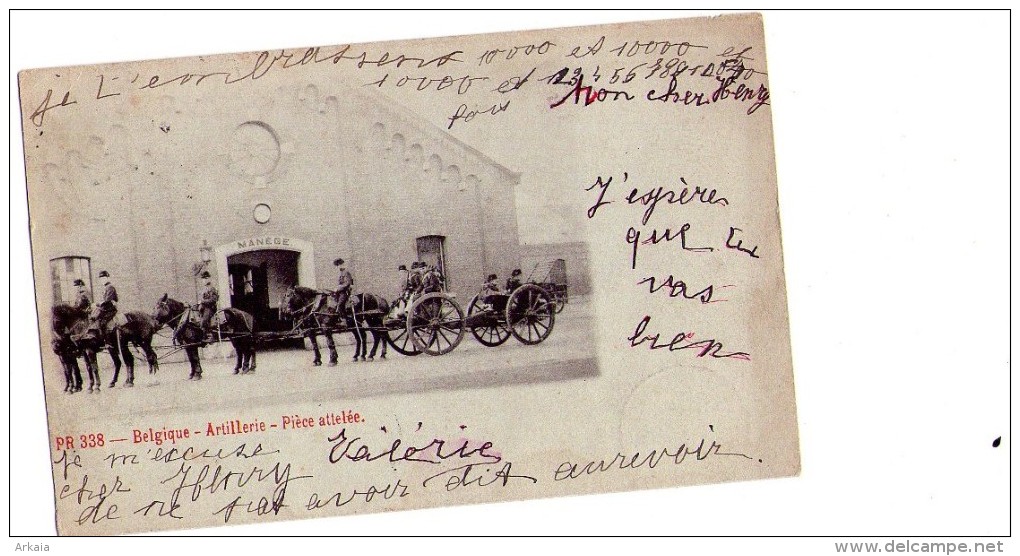 je t'embrassens 10000 et 10000 et
10000 et
fois
Mon cher Henry
J'espère
que tu
vas
bien
MANÈGE
PR 338 — Belgique - Artillerie - Pièce attelée.
je m'excuse Valérie
cher
de ne pas avoir dit aurevoir.
Arkaia
www.delcampe.net